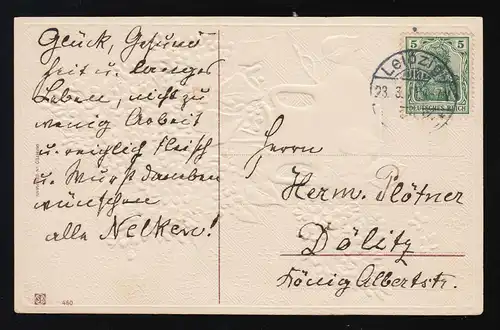 Glück, Gesund
heit u. langes
Leben, nicht zu
wenig Arbeit
u. reichlich Fleisch
u. Wurst daneben
wünschen
alle Nelken!
5 5
DEUTSCHES REICH
Leipzig
23. 3.
Herrn
Herm. Plötner
Dölitz
König Albertstr.
460